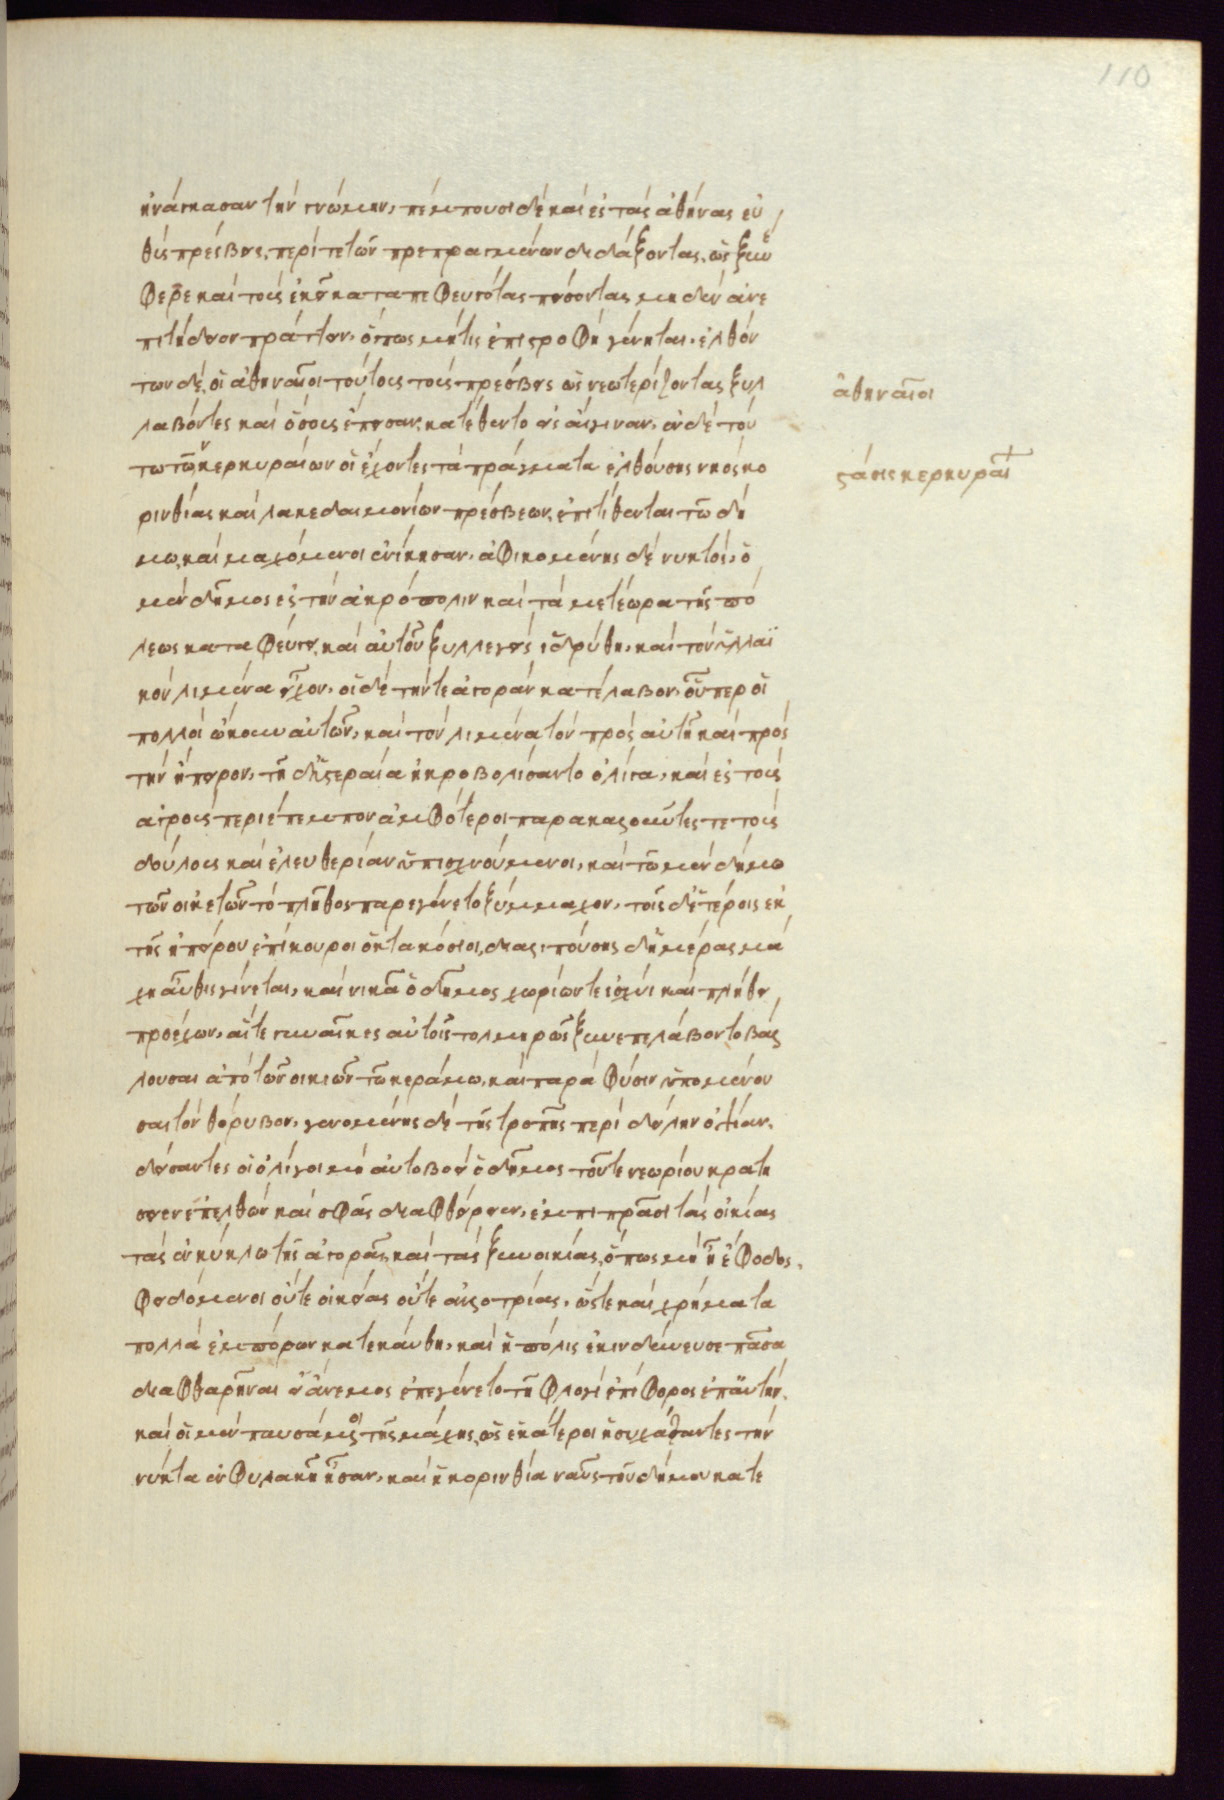 110
ἠνάγκασαν τὴν γνώμην, πέμπουσι δὲ καὶ ἐς τὰς ἀθήνας εὐ
θὺς πρέσβεις, περί τε τῶν πεπραγμένων διδάξοντας, ὡς ξυν
έφερε καὶ τοὺς ἐκεῖ καταπεφευγότας πείσοντας μηδὲν ἀνε
πιτήδειον πράττειν, ὅπως μή τις ἐπιστροφὴ γένηται, ἐλθόν
των δὲ, οἱ ἀθηναῖοι τούτους τοὺς πρέσβεις ὡς νεωτερίζοντας ξυλ
λαβόντες καὶ ὅσους ἔπεισαν, κατέθεντο εἰς αἴγιναν, ἐν δὲ τού
τω τῶν κερκυραίων οἱ ἔχοντες τὰ πράγματα ἐλθούσης νηὸς κο
ρινθίας καὶ λακεδαιμονίων πρέσβεων, ἐπιτίθενται τῶ δή
μω, καὶ μαχόμενοι ἐνίκησαν, ἀφικομένης δὲ νυκτὸς, ὁ
μὲν δῆμος ἐς τὴν ἀκρόπολιν καὶ τὰ μετέωρα τῆς πό
λεως καταφεύγει, καὶ αὐτοῦ ξυλλεγεὶς ἱδρύθη, καὶ τὸν ὑλλαϊ
κὸν λιμένα εἶχον, οἱ δὲ τήν τε ἀγορὰν κατέλαβον, οὗπερ οἱ
πολλοὶ ὤκουν αὐτῶν, καὶ τὸν λιμένα τὸν πρὸς αὐτῆ καὶ πρὸς
τὴν ἤπειρον, τῆ δ' ὑστεραία ἠκροβολίσαντο ὀλίγα, καὶ ἐς τοὺς
ἀγροὺς περιέπεμπον ἀμφότεροι παρακαλοῦντες τε τοὺς
δούλους καὶ ἐλευθερίαν ὑπισχνούμενοι, καὶ τῶ μὲν δήμω
τῶν οἰκετῶν τὸ πλῆθος παρεγένετο ξύμμαχον, τοῖς δ' ἑτέροις ἐκ
τῆς ἠπείρου ἐπίκουροι ὀκτακόσιοι, διαλιπούσης δ' ἡμέρας μά
χη αὖθις γίνεται, καὶ νικᾶ ὁ δῆμος χωρίων τε ἰσχύι καὶ πλήθει
προέχων, αἵ τε γυναῖκες αὐτοῖς τολμηρῶς ξυνεπελάβοντο βάλ
λουσαι ἀπὸ τῶν οἰκιῶν τῶ κεράμω, καὶ παρὰ φύσιν ὑπομένου
σαι τὸν θόρυβον, γενομένης δὲ τῆς τροπῆς περὶ δείλην ὀψίαν,
δείσαντες οἱ ὀλίγοι μὴ αὐτοβοεὶ ὁ δῆμος τοῦ τε νεωρίου κρατή
σειεν ἐπελθὼν καὶ σφᾶς διαφθείρειεν, ἐμπιπρᾶσι τὰς οἰκίας
τὰς ἐν κύκλω τῆς ἀγορᾶς, καὶ τὰς ξυνοικίας, ὅπως μὴ ἦ ἔφοδος,
φειδόμενοι οὔτε οἰκείας οὔτε ἀλλοτρίας, ὥστε καὶ χρήματα
πολλὰ ἐμπόρων κατεκαύθη, καὶ ἡ πόλις ἐκινδύνευσε πᾶσα
διαφθαρῆναι εἰ ἄνεμος ἐπεγένετο τῆ φλογὶ ἐπίφορος ἐπ' αὐτὴν.
καὶ οἱ μὲν παυσάμενοι τῆς μάχης, ὡς ἑκάτεροι ἡσυχάσαντες τὴν
νύκτα ἐν φυλακῆ ἦσαν, καὶ ἡ κορινθία ναῦς τοῦ δήμου κατε
ἀθηναῖοι
στάσις κερκυραί